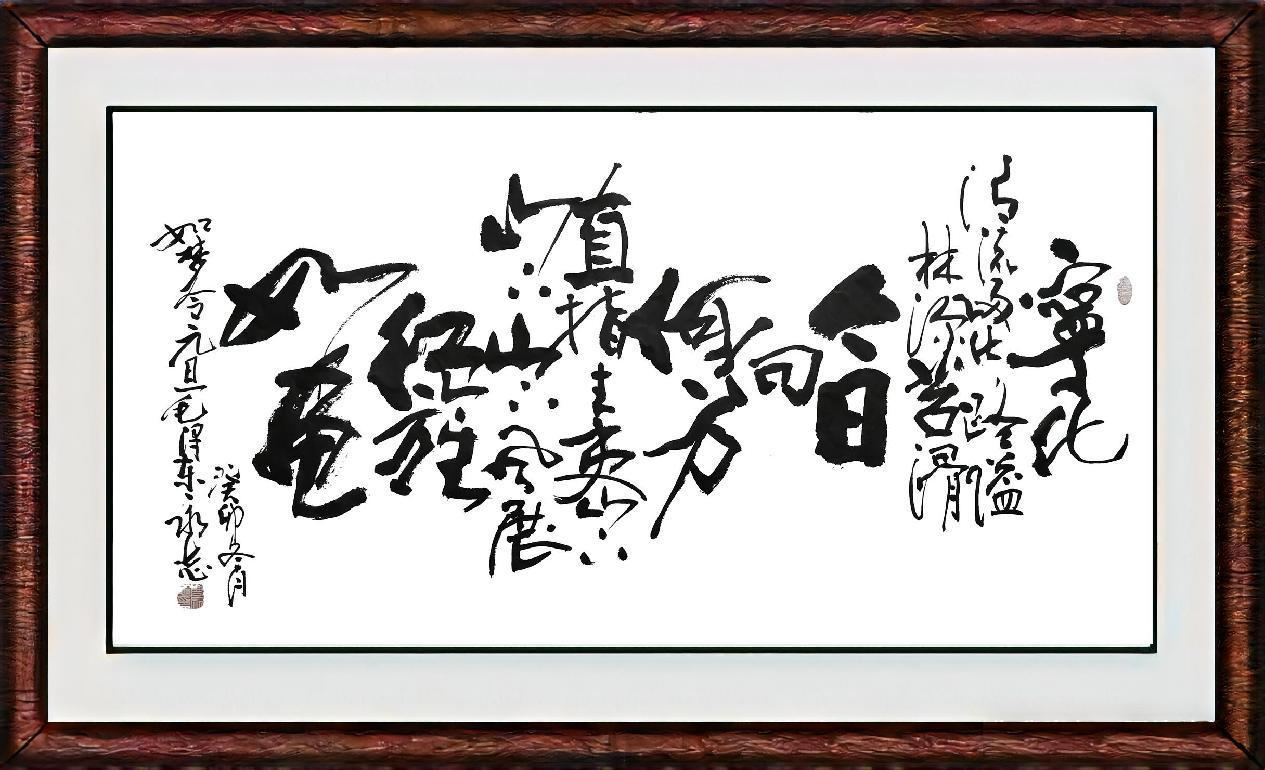 寧化
清流歸化路隘
林深苔滑
今日
向
何方
直指武夷山下
山下山下风展
红旗
如画
癸卯冬月
如梦令元旦毛泽东永志